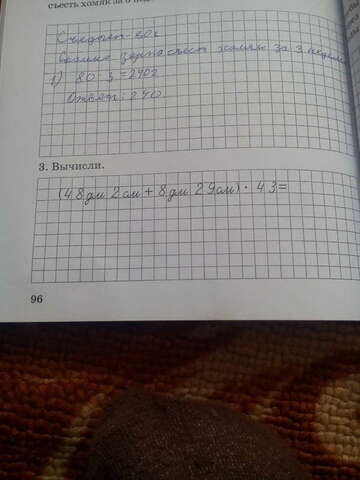 съесть хомяк за 3
Съедает-80г
Сколько зерна съест хомяк за 3 недели
1) 80·3=240г
Ответ: 240
3. Вычисли.
(48 дм 2 см + 8 дм 29 см) · 43=
96